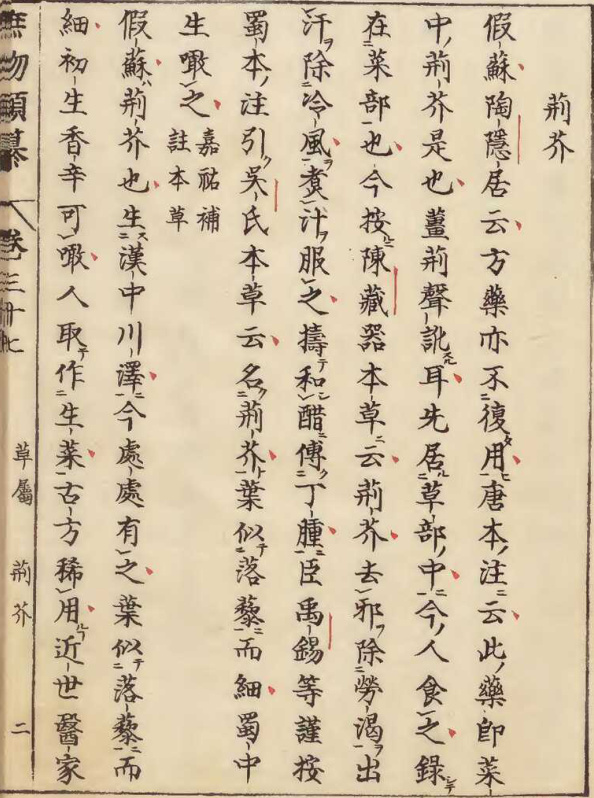 荊芥
假蘇陶隱居云方藥亦不復用唐本注云此藥即菜
中荊芥是也薑荊聲訛耳先居草部中今人食之錄
在菜部也今按陳藏器本草云荊芥去邪除勞渴出
汗除冷風煑汁服之擣和醋傅丁腫臣禹錫等謹按
蜀本注引吳氏本草云名荊芥葉似落藜而細蜀中
生噉之嘉祐補註本草
假蘇荊芥也生漢中川澤今處處有之葉似落藜而
細初生香辛可噉人取作生菜古方稀用近世醫家
庶物類纂 卷三十七 草屬 荊芥 二